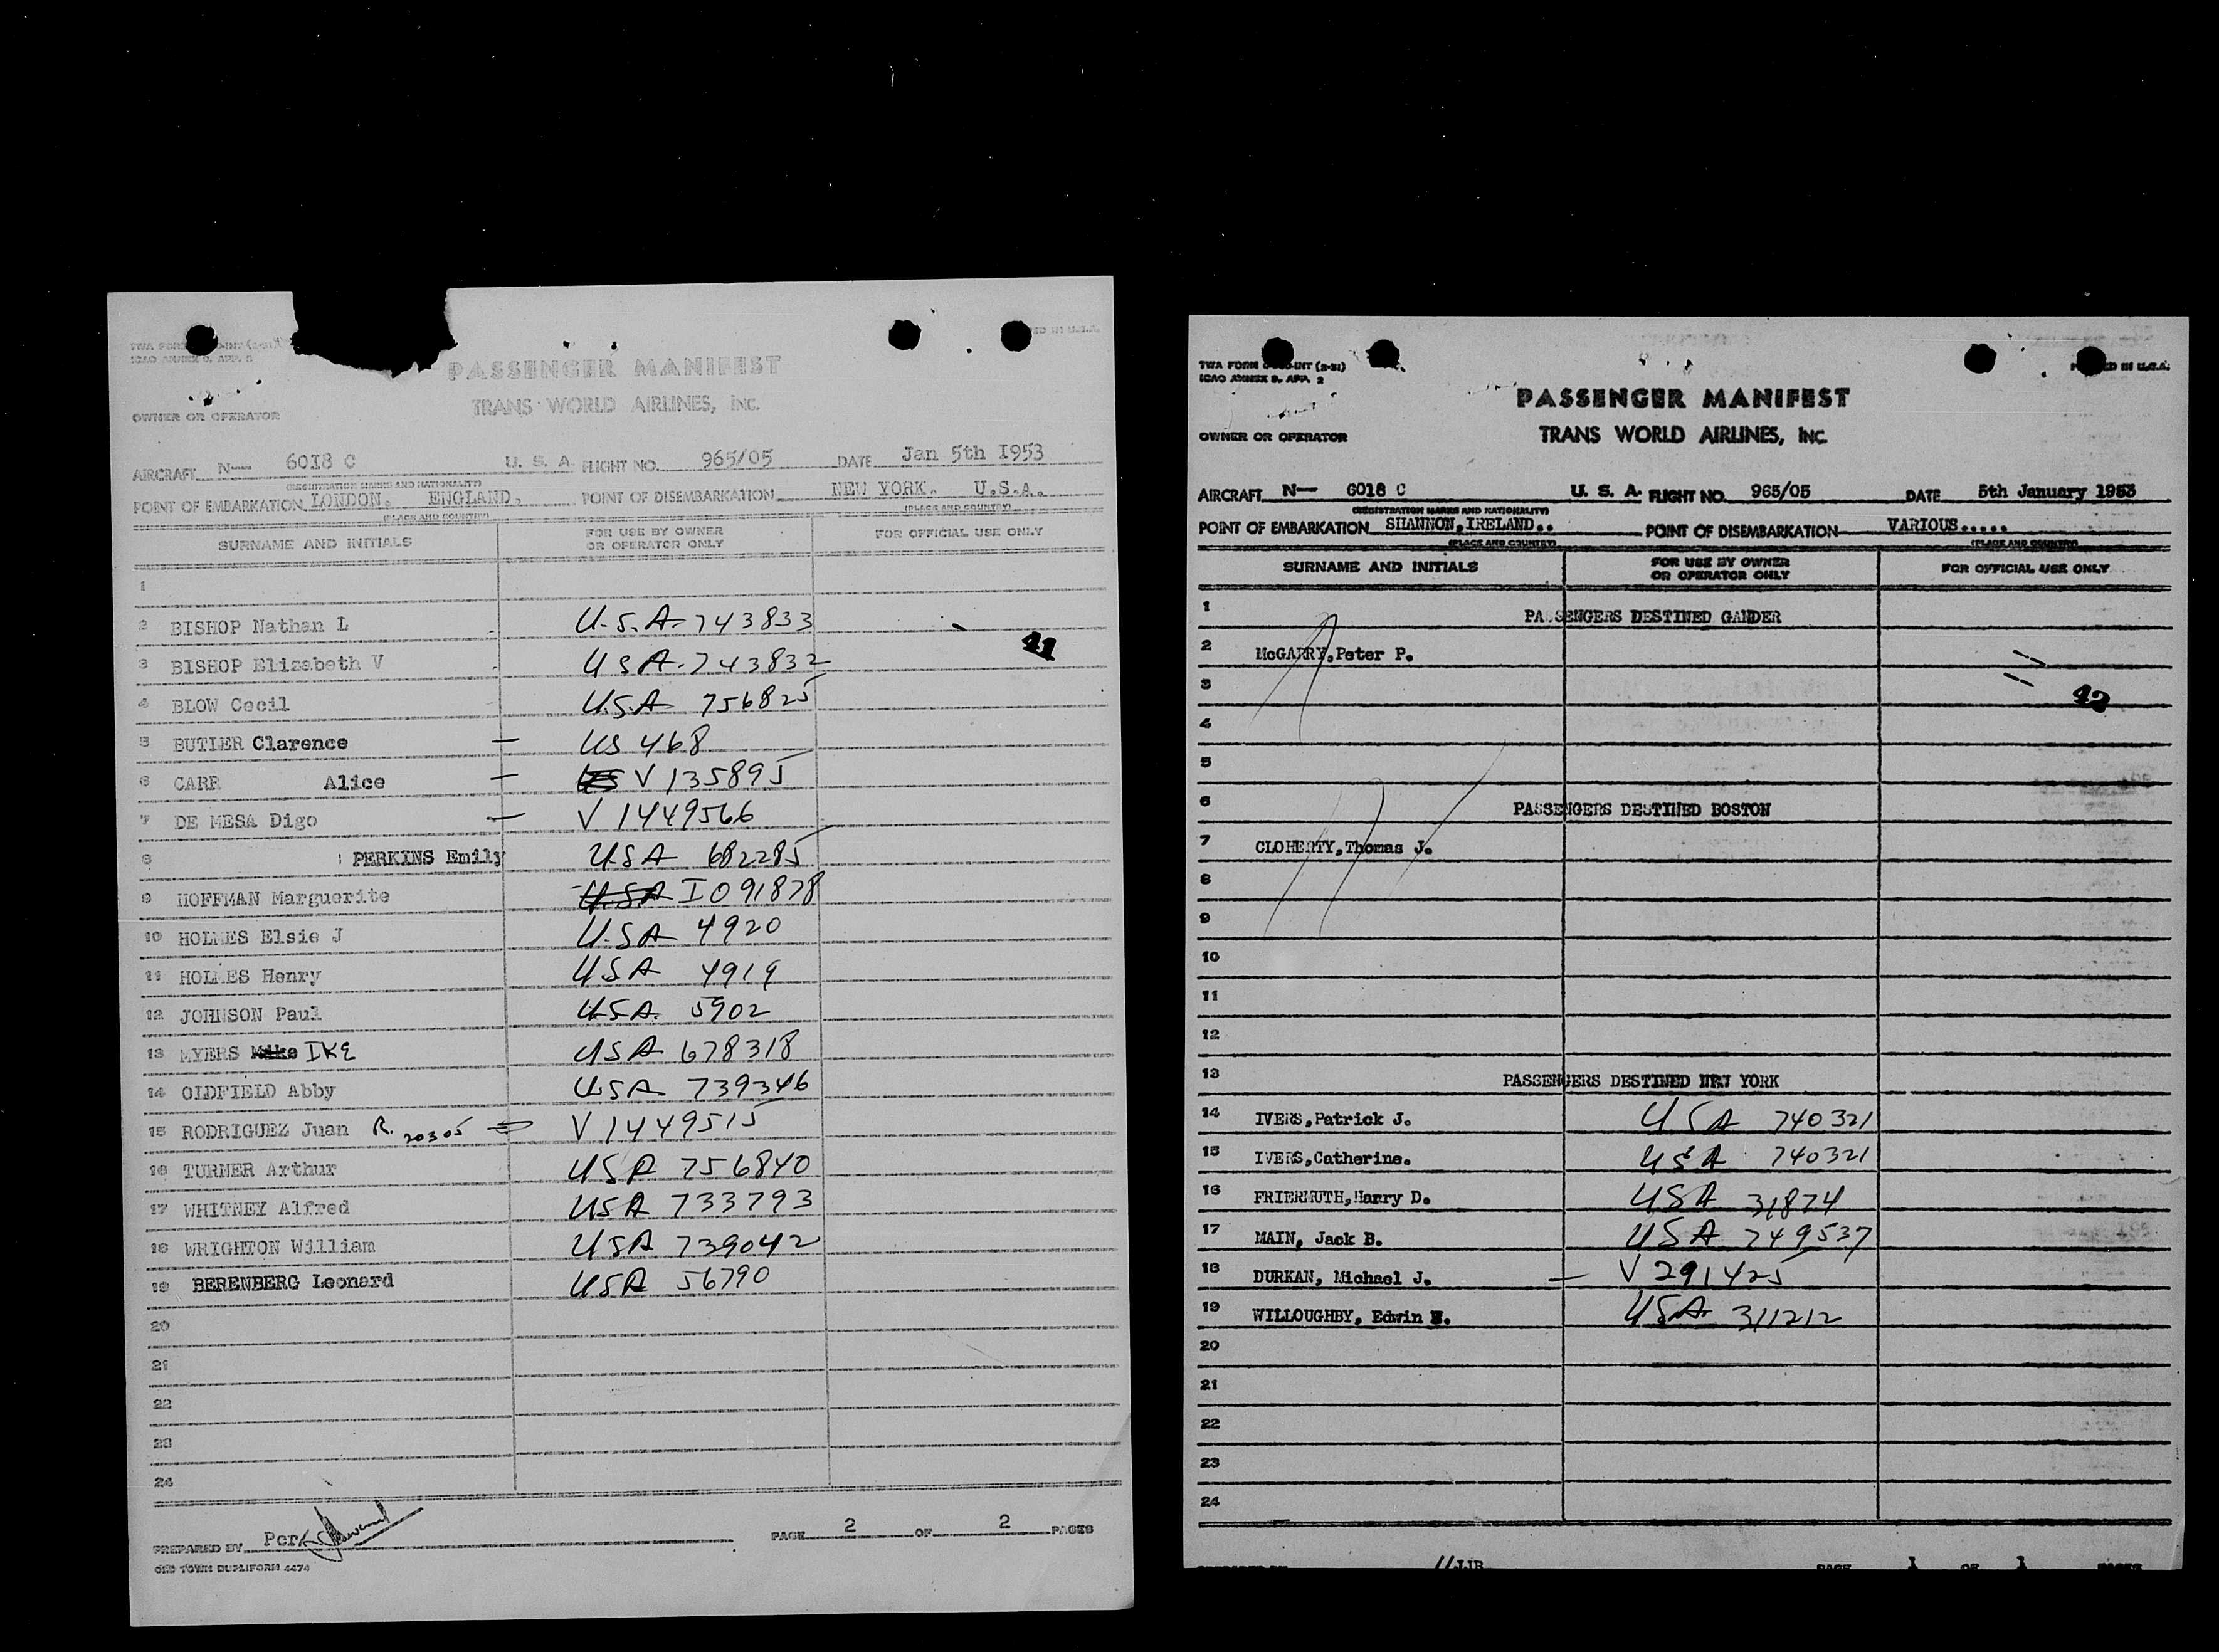 PASSENGER MANIFEST
TRANS WORLD AIRLINES, INC.
ICAO ANNEX 9, APP. 2
OWNER OR OPERATOR
AIRCRAFT N— 6018 C U. S. A. FLIGHT NO. 965/05 DATE Jan 5th 1953
(REGISTRATION MARKS AND NATIONALITY)
POINT OF EMBARKATION LONDON. ENGLAND. POINT OF DISEMBARKATION NEW YORK. U.S.A.
(PLACE AND COUNTRY) (PLACE AND COUNTRY)
SURNAME AND INITIALS FOR USE BY OWNER OR OPERATOR ONLY FOR OFFICIAL USE ONLY
1
2 BISHOP Nathan L U.S.A. 743833
41
3 BISHOP Elizabeth V USA. 743832
4 BLOW Cecil U.S.A 756825
5 BUTLER Clarence — US 468
6 CARR Alice — V 135895
7 DE MESA Digo — V 1449566
8 PERKINS Emily USA 682285
9 HOFFMAN Marguerite U.S.A I 091878
10 HOLMES Elsie J U.SA 4920
11 HOLMES Henry USA 4919
12 JOHNSON Paul USA. 5902
13 MYERS Mike IKE USA 678318
14 OLDFIELD Abby USA 739346
15 RODRIGUEZ Juan R. 20305 V 1449515
16 TURNER Arthur USA 756840
17 WHITNEY Alfred USA 733793
18 WRIGHTON William USA 739042
19 BERENBERG Leonard USA 56790
20
21
22
23
24
PREPARED BY Per
PAGE 2 OF 2 PAGES
OLD TOWN DUPLIFORM 4474
TWA FORM INT (2-51)
ICAO ANNEX 9, APP. 2
ED IN U.S.A.
PASSENGER MANIFEST
OWNER OR OPERATOR TRANS WORLD AIRLINES, INC.
AIRCRAFT N— 6018 C U. S. A. FLIGHT NO. 965/05 DATE 5th January 1953
(REGISTRATION MARKS AND NATIONALITY)
POINT OF EMBARKATION SHANNON, IRELAND.. POINT OF DISEMBARKATION VARIOUS.....
(PLACE AND COUNTRY) (PLACE AND COUNTRY)
SURNAME AND INITIALS FOR USE BY OWNER OR OPERATOR ONLY FOR OFFICIAL USE ONLY
1 PASSENGERS DESTINED GANDER
2 McGARRY, Peter P.
3
42
4
5
6 PASSENGERS DESTINED BOSTON
7 CLOHERTY, Thomas J.
8
9
10
11
12
13 PASSENGERS DESTINED NEW YORK
14 IVERS, Patrick J. USA 740321
15 IVERS, Catherine. USA 740321
16 FRIERMUTH, Harry D. USA 31874
17 MAIN, Jack B. USA 749537
18 DURKAN, Michael J. — V 291425
19 WILLOUGHBY, Edwin E. USA 311212
20
21
22
23
24
PAGE 1 OF 1 PAGES